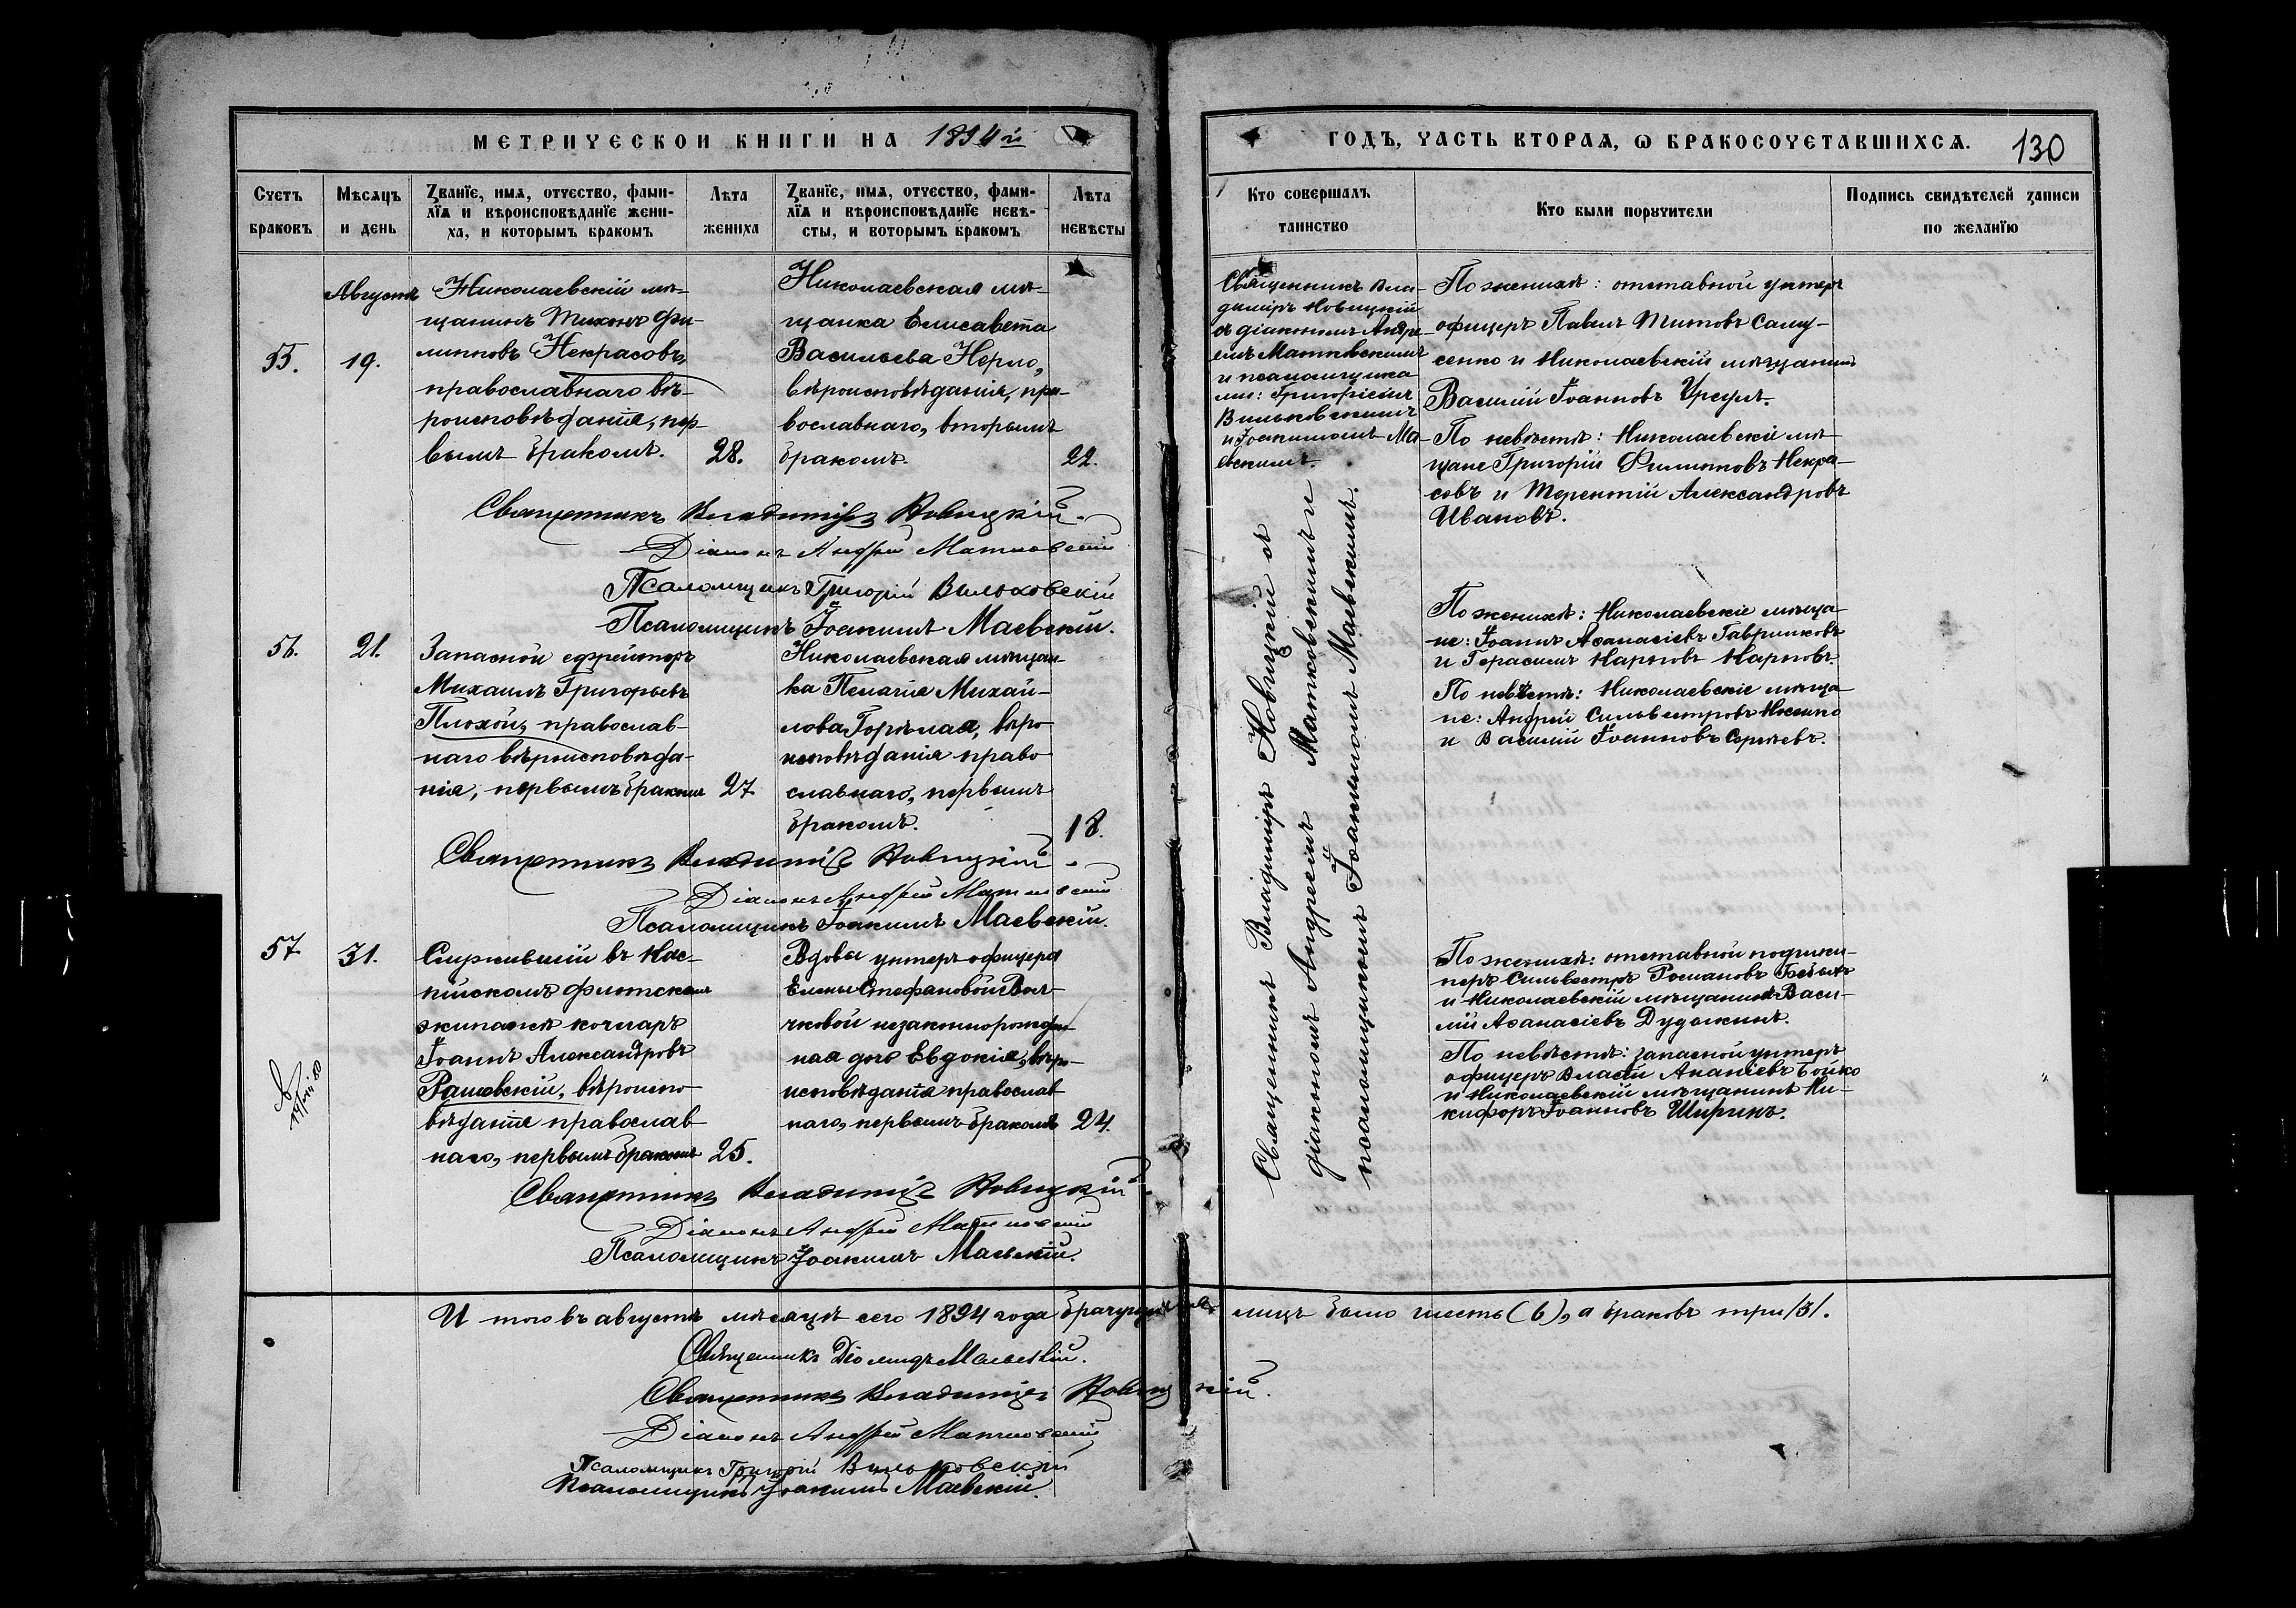 МЕТРИЧЕСКОЙ КНИГИ НА 1894й
ГОДЪ, ЧАСТЬ ВТОРАѦ, Ѡ БРАКОСОЧЕТАВШИХСѦ. 130
Счетъ браковъ
Мѣсѧцъ и день
Званїе, имѧ, отчество, фами-
лїѧ и вѣроисповѣданїе жени-
ха, и которымъ бракомъ
Лѣта жениха
Званїе, имѧ, отчество, фами-
лїѧ и вѣроисповѣданїе невѣ-
сты, и которымъ бракомъ
Лѣта невѣсты
Кто совершалъ таинство
Кто были порꙋчители
Подпись свидѣтелей записи
по желанїю
55.
Августъ
19.
Николаевскій мѣ-
щанинъ Тихонъ Фи-
липповъ Некрасовъ,
православнаго вѣ-
роисповѣданія, пер-
вымъ бракомъ.
28.
Николаевская мѣ-
щанка Елисавета
Васильева
вѣроисповѣданія, пра-
вославнаго, вторымъ
бракомъ.
22.
Священникъ Вла-
диміръ Новицкій
съ діакономъ Андре-
емъ Матковскимъ
и псаломщика-
ми: Григоріемъ
Вильховскимъ
и Іоакимомъ Ма-
евскимъ.
По женихѣ: отставной унтеръ
офицеръ Павелъ Титовъ Саму-
сенко и Николаевскій мѣщанинъ
Василій Іоанновъ Урсулъ.
По невѣстѣ: Николаевскіе мѣ-
щане Григорій Филипповъ Некра-
совъ и Терентій Александровъ
Ивановъ.
Священникъ Владиміръ Новицкій.
Діаконъ Андрей Матковскій
Псаломщикъ Григорій Вильховскій
Псаломщикъ Іоакимъ Маевскій.
56.
21.
Запасной ефрейторъ
Михаилъ Григорьевъ
Плохой, православ-
наго вѣроисповѣда-
нія, первымъ бракомъ
27.
Николаевская мѣщан-
ка Пелагія Михай-
лова Горѣлая, вѣро
исповѣданія право
славнаго, первымъ
бракомъ.
18.
Священникъ Владиміръ Новицкій съ
діакономъ Андреемъ Матковскимъ и
псаломщикомъ Іоакимомъ Маевскимъ.
По женихѣ: Николаевскіе мѣща-
не: Іоаннъ Аѳанасіевъ Гавриковъ
и Герасимъ Карповъ Карповъ.
По невѣстѣ: Николаевскіе мѣща-
не: Андрей Сильвестровъ
и Василій Іоанновъ Сергѣевъ.
Священникъ Владиміръ Новицкій.
Діаконъ Андрей Матковскій
Псаломщикъ Іоакимъ Маевскій.
57
31.
Служившій въ Кас-
пійскомъ флотскомъ
экипажѣ кочгаръ
Іоаннъ Александровъ
Рашевскій, вѣроиспо
вѣданія православ
наго, первымъ бракомъ
25.
Вдовы унтеръ-офицера
Елены Стефановой
незаконнорожден-
ная дочь Евдокія, вѣро-
исповѣданія православ
наго, первымъ бракомъ
24.
По женихѣ: отставной подшки-
перъ Сильвестръ Романовъ
и Николаевскій мѣщанинъ Васи-
лій Аѳанасіевъ Дудолкинъ.
По невѣстѣ: запасной унтеръ
офицеръ Власій Ананіевъ Бойко
и Николаевскій мѣщанинъ Ни-
кифоръ Іоанновъ Ширинъ.
Священникъ Владиміръ Новицкій
Діаконъ Андрей Матковскій
Псаломщикъ Іоакимъ Маевскій.
И того въ августѣ мѣсяцѣ сего 1894 года брачущихся лицъ было шесть (6), а браковъ три /3/.
Священникъ Діомидъ Маевскій.
Священникъ Владиміръ Новицкій.
Діаконъ Андрей Матковскій
Псаломщикъ Григорій Вильховскій
Псаломщикъ Іоакимъ Маевскій.